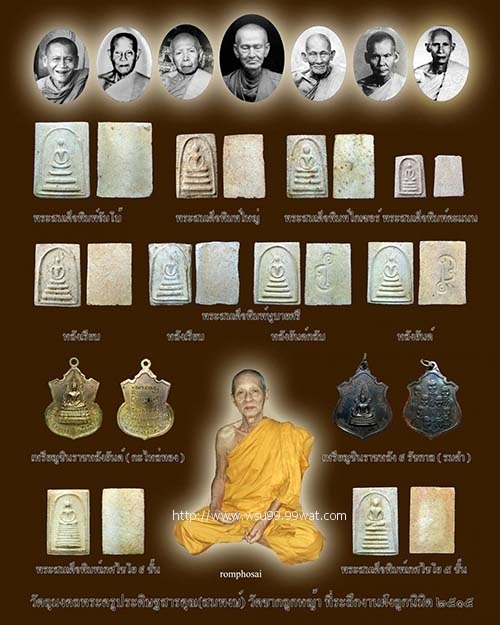 พระสมเด็จพิมพ์จัมโบ้ พระสมเด็จพิมพ์ใหญ่ พระสมเด็จพิมพ์ไกเซอร์ พระสมเด็จพิมพ์คะแนน
พระสมเด็จพิมพ์ชูบายศรี
หลังเรียบ หลังเรียบ หลังยันต์กลับ หลังยันต์
เหรียญชินราชหลังยันต์ ( กะไหล่ทอง ) เหรียญชินราชหลัง ๙ รัชกาล ( รมดำ )
http://www.wsu99.99wat.com
พระสมเด็จพิมพ์เกศไชโย ๙ ชั้น พระสมเด็จพิมพ์เกศไชโย ๕ ชั้น
romphosai
วัตถุมงคลพระครูประดิษฐสารคุณ(สมพงษ์) วัดชากลูกหญ้า ที่ระลึกงานฝังลูกนิมิต ๒๕๑๕